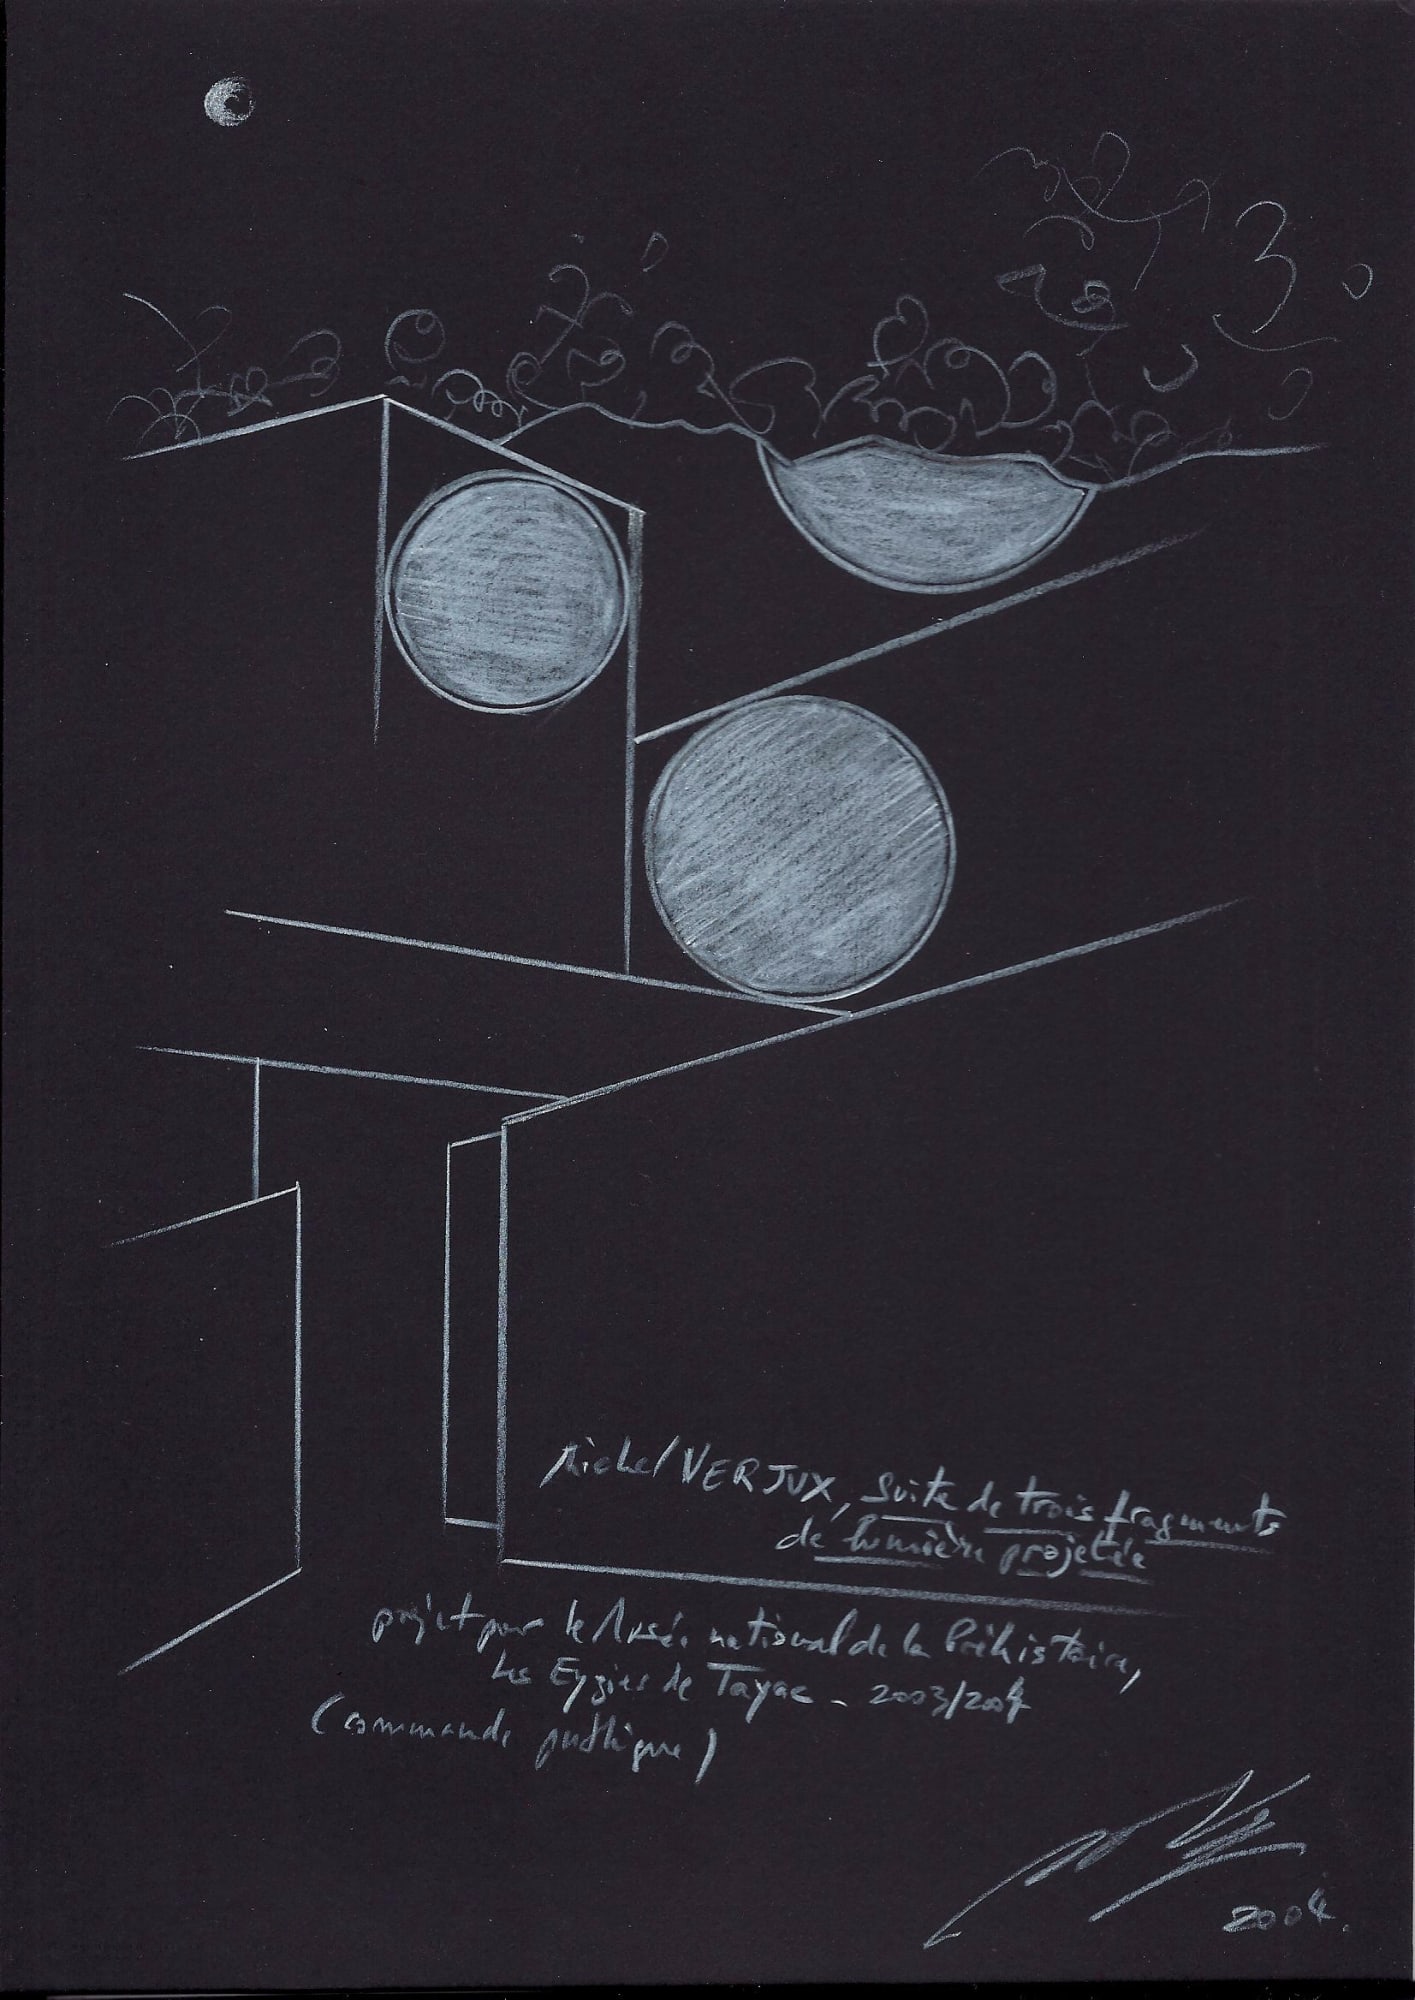 Michel VERJUX, Suite de trois fragments
de lumière projetée
projet pour le Musée national de la Préhistoire,
Les Eyzies de Tayac - 2003/2004
(commande publique)
2004.